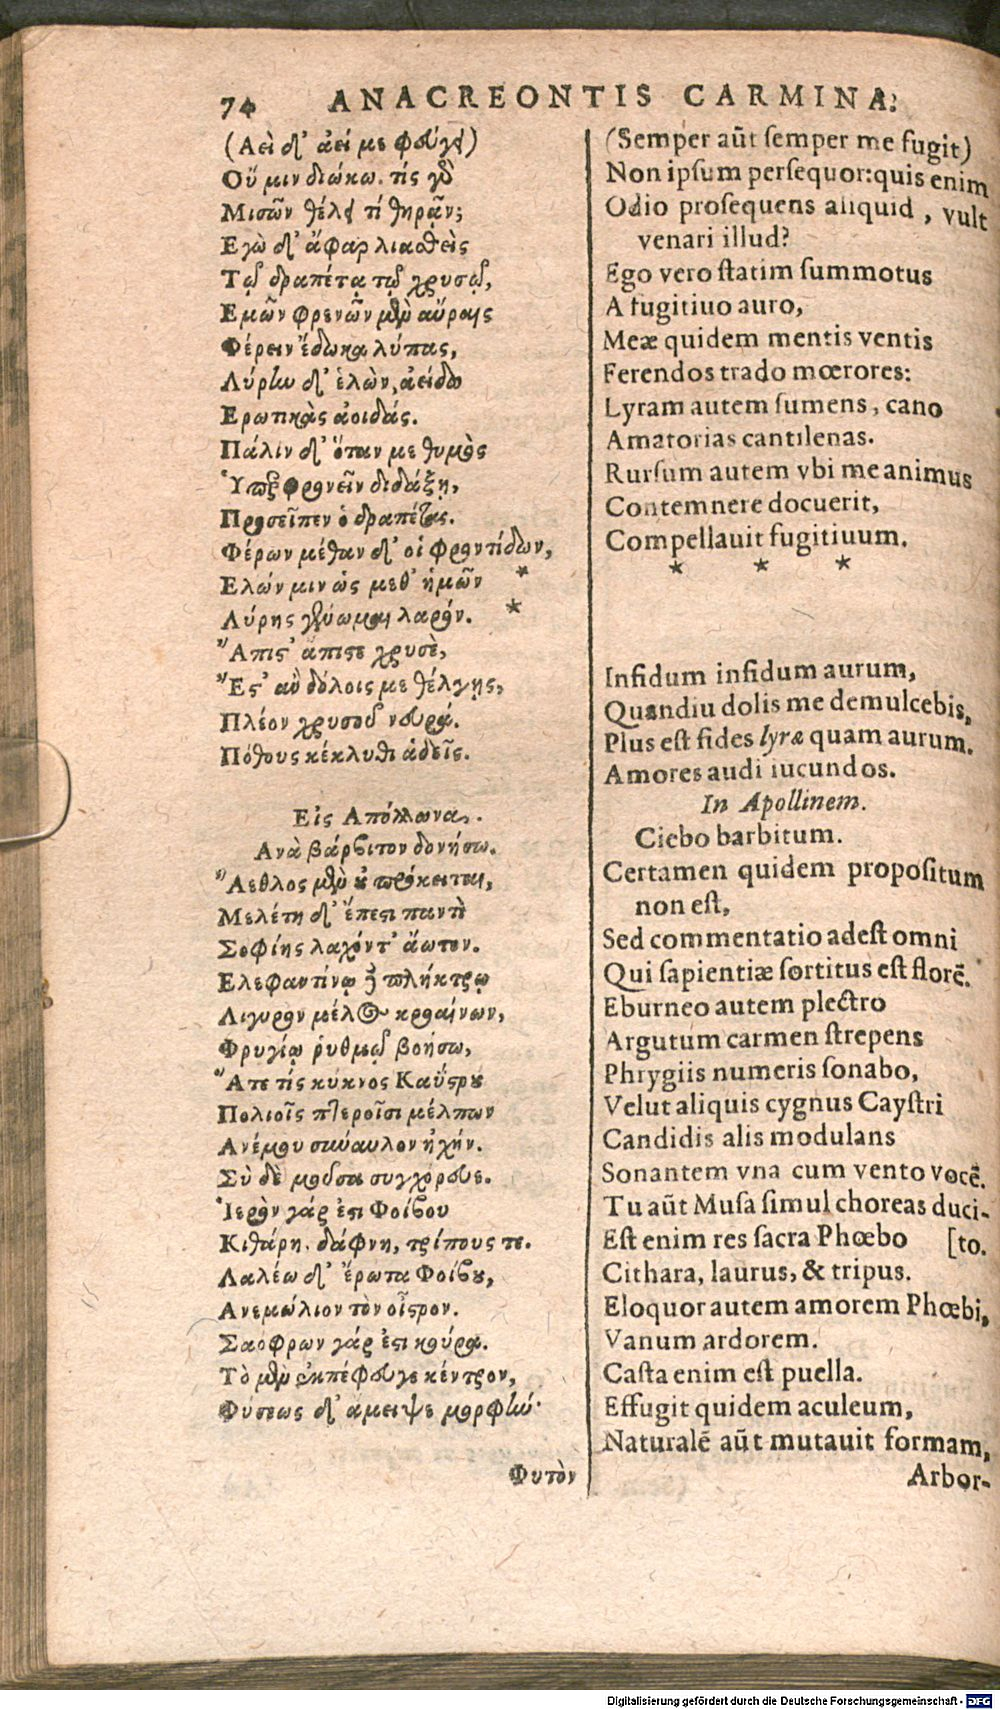 74 ANACREONTIS CARMINA.
(Αεὶ δ' ἀεί με φεύγει)
Οὔ μιν διώκω. τίς γὸ
Μισῶν θέλει τί θηρᾶν;
Εγὼ δ' ἄφαρ λιασθεὶς
Τῷ δραπέτᾳ τῷ χρυσῷ,
Εμῶν φρενῶν μὲν αὔραις
Φέρειν ἔδωκα λύπας,
Λύρην δ' ἑλὼν, ἀείδω
Ερωτικὰς ἀοιδάς.
Πάλιν δ' ὅταν με θυμὸς
Ὑπερφρονεῖν διδάξῃ,
Προσεῖπεν ὁ δραπέτας.
Φέρων μέθαν δ' οἱ φροντίδων,
Ελών μιν ὡς μεθ' ἡμῶν *
Λύρης γένωμαι λαρόν. *
Ἄπιστ' ἄπιστε χρυσὲ,
Ἔστ' αὖ δόλοις με θέλγῃς,
Πλέον χρυσοῦ νουρά.
Πόθους κέκλυθι ἁδεῖς.
Εἰς Απόλλωνα.
Ανὰ βάρβιτον δονήσω.
Ἄεθλος μὲν οὐ πρόκειται,
Μελέτη δ' ἔπεστι παντὶ
Σοφίης λαχόντ' ἄωτον.
Ελεφαντίνῳ δὲ πλήκτρῳ
Λιγυρὸν μέλος κροαίνων,
Φρυγίῳ ῥυθμῷ βοήσω,
Ἅτε τίς κύκνος Καΰστρου
Πολιοῖς πτεροῖσι μέλπων
Ανέμου σύναυλον ἠχήν.
Σὺ δὲ μοῦσα συγχόρευε.
Ἱερὸν γάρ ἐστι Φοίβου
Κιθάρη. δάφνη, τρίπους τε.
Λαλέω δ' ἔρωτα Φοίβου,
Ανεμώλιον τὸν οἶστρον.
Σαόφρων γάρ ἐστι κούρα.
Τὸ μὲν ἐκπέφευγε κέντρον,
Φύσεως δ' ἄμειψε μορφήν·
Φυτὸν
(Semper aūt semper me fugit)
Non ipsum persequor: quis enim
Odio prosequens aliquid, vult
venari illud?
Ego vero statim summotus
A fugitiuo auro,
Meæ quidem mentis ventis
Ferendos trado mœrores:
Lyram autem sumens, cano
Amatorias cantilenas.
Rursum autem vbi me animus
Contemnere docuerit,
Compellauit fugitiuum.
* * *
Infidum infidum aurum,
Quandiu dolis me demulcebis,
Plus est fides lyræ quam aurum.
Amores audi iucundos.
In Apollinem.
Ciebo barbitum.
Certamen quidem propositum
non est,
Sed commentatio adest omni
Qui sapientiæ sortitus est florē.
Eburneo autem plectro
Argutum carmen strepens
Phrygiis numeris sonabo,
Velut aliquis cygnus Caystri
Candidis alis modulans
Sonantem vna cum vento vocē.
Tu aūt Musa simul choreas duci-
Est enim res sacra Phœbo [to.
Cithara, laurus, & tripus.
Eloquor autem amorem Phœbi,
Vanum ardorem.
Casta enim est puella.
Effugit quidem aculeum,
Naturalē aūt mutauit formam,
Arbor-
Digitalisierung gefördert durch die Deutsche Forschungsgemeinschaft - DFG